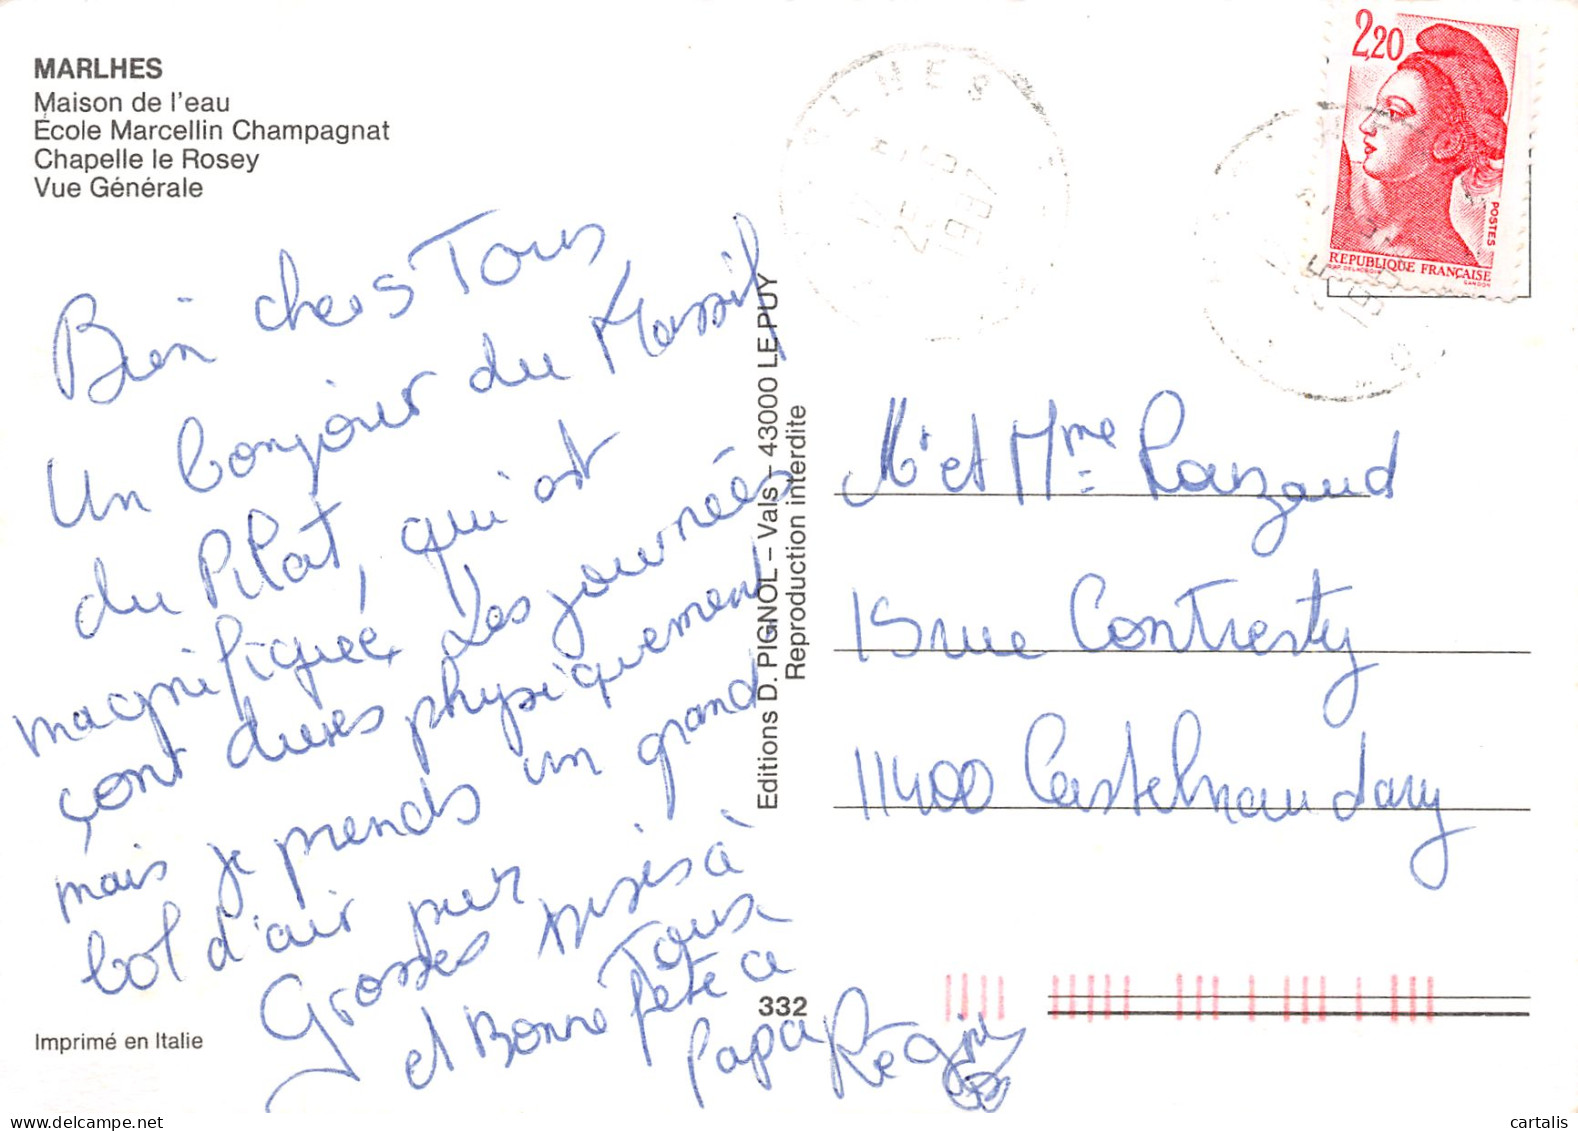 MARLHES
Maison de l'eau
École Marcellin Champagnat
Chapelle le Rosey
Vue Générale
Bien chers Tous
Un bonjour du Massif
du Pilat, qui est
magnifique. Les journées
sont dures physiquement
mais je prends un grand
bol d'air pur
Grosses bises à
Tous
et Bonne fête a
papa Régine
Imprimé en Italie
Editions D. PIGNOL – Vals – 43000 LE PUY
Reproduction interdite
332
2,20
POSTES
REPUBLIQUE FRANÇAISE
1987
Mr et Mme Rouzaud
15 rue Contresty
11400 Castelnaudary
cartalis